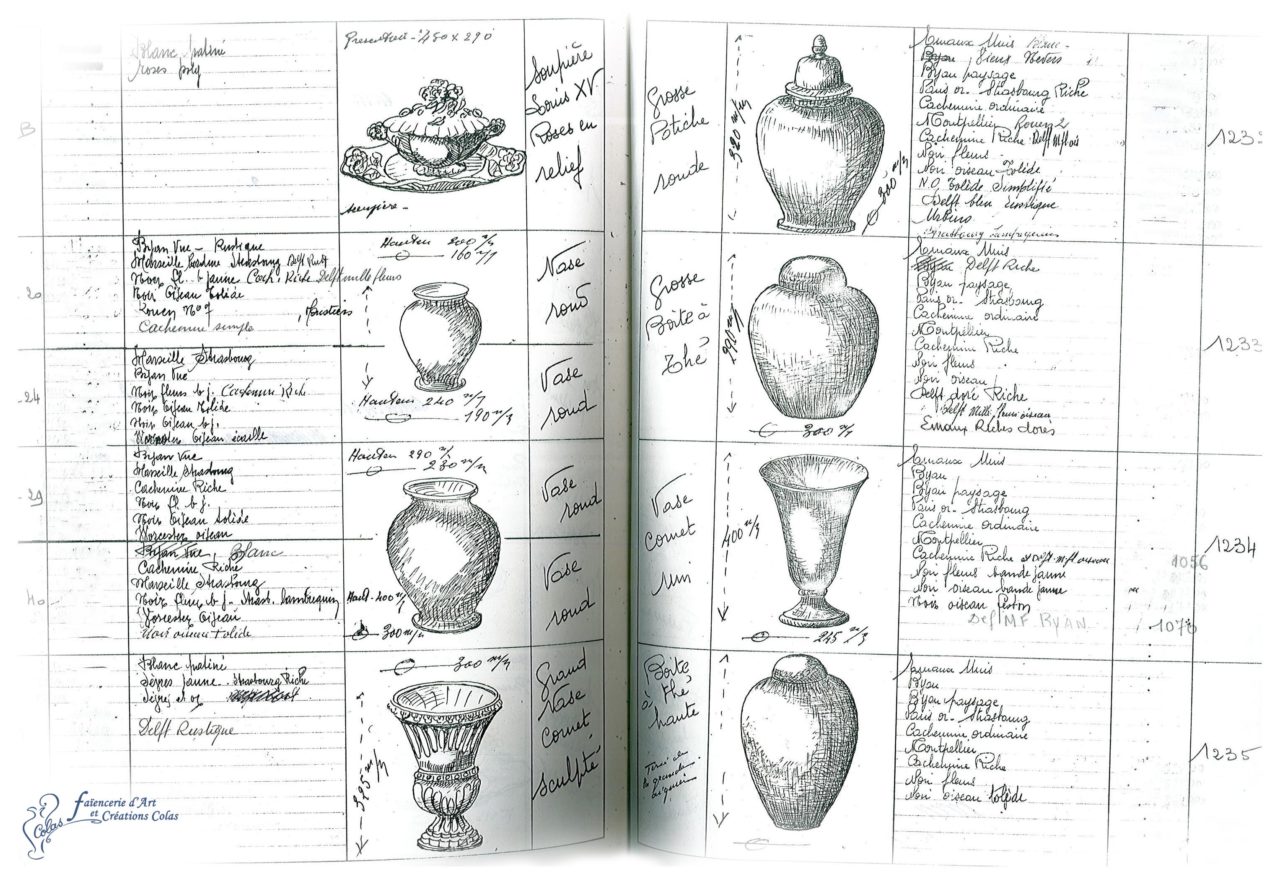 Blanc patiné
roses poly
B
Presentoir - 480 x 290
soupière -
soupière
Louis XV.
Roses en
relief
Byan Vue - Rustique
Marseille Strasbourg Delft Rust
Noir fl. b. jaune Cach. Riche Delft mille fleurs
Noir Oiseau Tolède
Rouen N° 7
Moustiers
Cachemire simple
20
Hauteur 200 m/m
160 m/m
Vase
rond
Marseille Strasbourg
Byan Vue
Noir fleurs b j. Cachemire Riche
Noir Oiseau Tolède
Noir Oiseau b j.
Oiseau écaille
24
Hauteur 240 m/m
190 m/m
Vase
rond
Byan Vue
Marseille Strasbourg
Cachemire Riche
Noir fl. b j.
Noir Oiseau tolède
Worcester oiseau
29
Hauteur 290 m/m
230 m/m
Vase
rond
Byan Vue, Blanc
Cachemire Riche
Marseille Strasbourg
Noir fleurs b j. Strasb. Lambrequin
Worcester Oiseau
Noir oiseau tolède
40
Haut. 400 m/m
300 m/m
Vase
rond
Blanc patiné
Sèvres jaune - Strasbourg Riche
Sèvres et or
Delft Rustique
300 m/m
385 m/m
Grand
Vase
Cornet
sculpté
Colas
faïencerie d'Art
et Créations Colas
Grosse
Potiche
ronde
320 m/m
300 m/m
Armaux Unis
Byan, Vieux Nevers
Byan paysage
Paris or - Strasbourg Riche
Cachemire ordinaire
Montpellier Rouen 2
Cachemire Riche Delft
Noir fleurs
Noir oiseau Tolède
N.O. Tolède Simplifié
Delft bleu
Strasbourg Lambrequins
123
Grosse
Boîte à
Thé
290 m/m
300 m/m
Armaux Unis
Delft Riche
Byan paysage
Paris or - Strasbourg
Cachemire ordinaire
Montpellier
Cachemire Riche
Noir fleurs
Noir oiseau
Delft doré Riche
Delft Mille fleurs oiseau
Emaux Riches dorés
1233
Vase
Cornet
Uni
400 m/m
245 m/m
Armaux Unis
Byan
Byan paysage
Paris or - Strasbourg
Cachemire ordinaire
Montpellier
Cachemire Riche
Noir fleurs bande jaune
Noir oiseau bande jaune
Noir oiseau feston
Delf MF BYAN
1056
1073
1234
Boîte
à thé
haute
Armaux Unis
Byan
Byan paysage
Paris or - Strasbourg
Cachemire ordinaire
Montpellier
Cachemire Riche
Noir fleurs
Noir oiseau tolède
1235